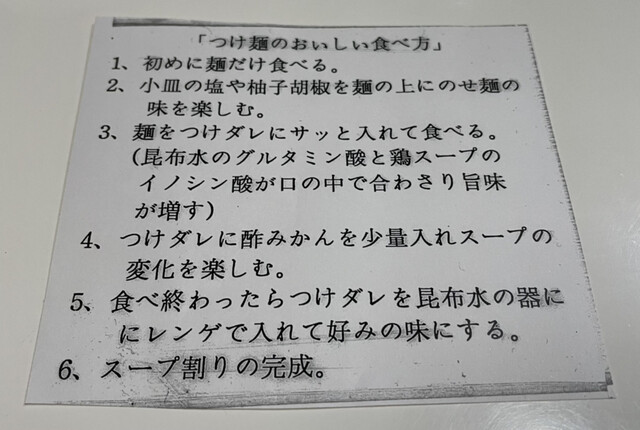 「つけ麺のおいしい食べ方」
1、初めに麺だけ食べる。
2、小皿の塩や柚子胡椒を麺の上にのせ麺の
味を楽しむ。
3、麺をつけダレにサッと入れて食べる。
(昆布水のグルタミン酸と鶏スープの
イノシン酸が口の中で合わさり旨味
が増す)
4、つけダレに酢みかんを少量入れスープの
変化を楽しむ。
5、食べ終わったらつけダレを昆布水の器に
にレンゲで入れて好みの味にする。
6、スープ割りの完成。